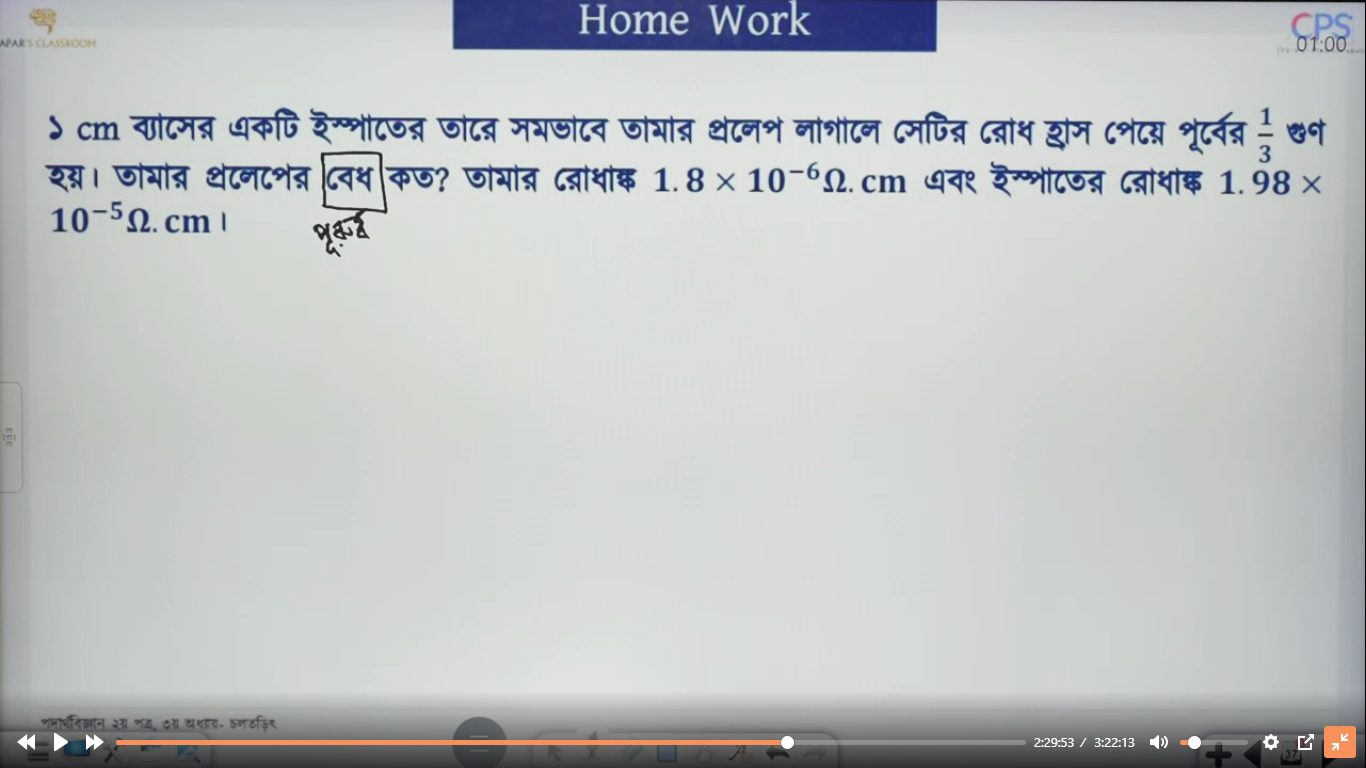 Home Work
APAR'S CLASSROOM
CPS
01:00
১ cm ব্যাসের একটি ইস্পাতের তারে সমভাবে তামার প্রলেপ লাগালে সেটির রোধ হ্রাস পেয়ে পূর্বের 1/3 গুণ
হয়। তামার প্রলেপের বেধ কত? তামার রোধাঙ্ক 1.8 × 10⁻⁶Ω.cm এবং ইস্পাতের রোধাঙ্ক 1.98 ×
10⁻⁵Ω.cm।
পদার্থবিজ্ঞান ২য় পত্র, ৩য় অধ্যায়- চলতড়িৎ
2:29:53 / 3:22:13
37